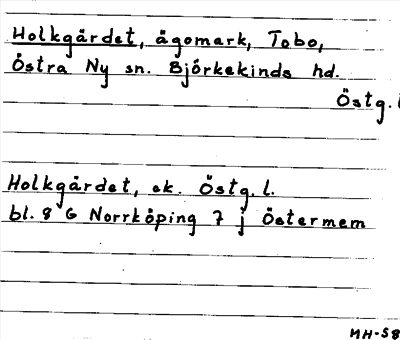 Holkgärdet, ägomark, Tobo,
Östra Ny sn. Björkekinds hd.
Östg.
Holkgärdet, ek. Östg. l.
bl. 8 G Norrköping 7 j Östermem
MH-58